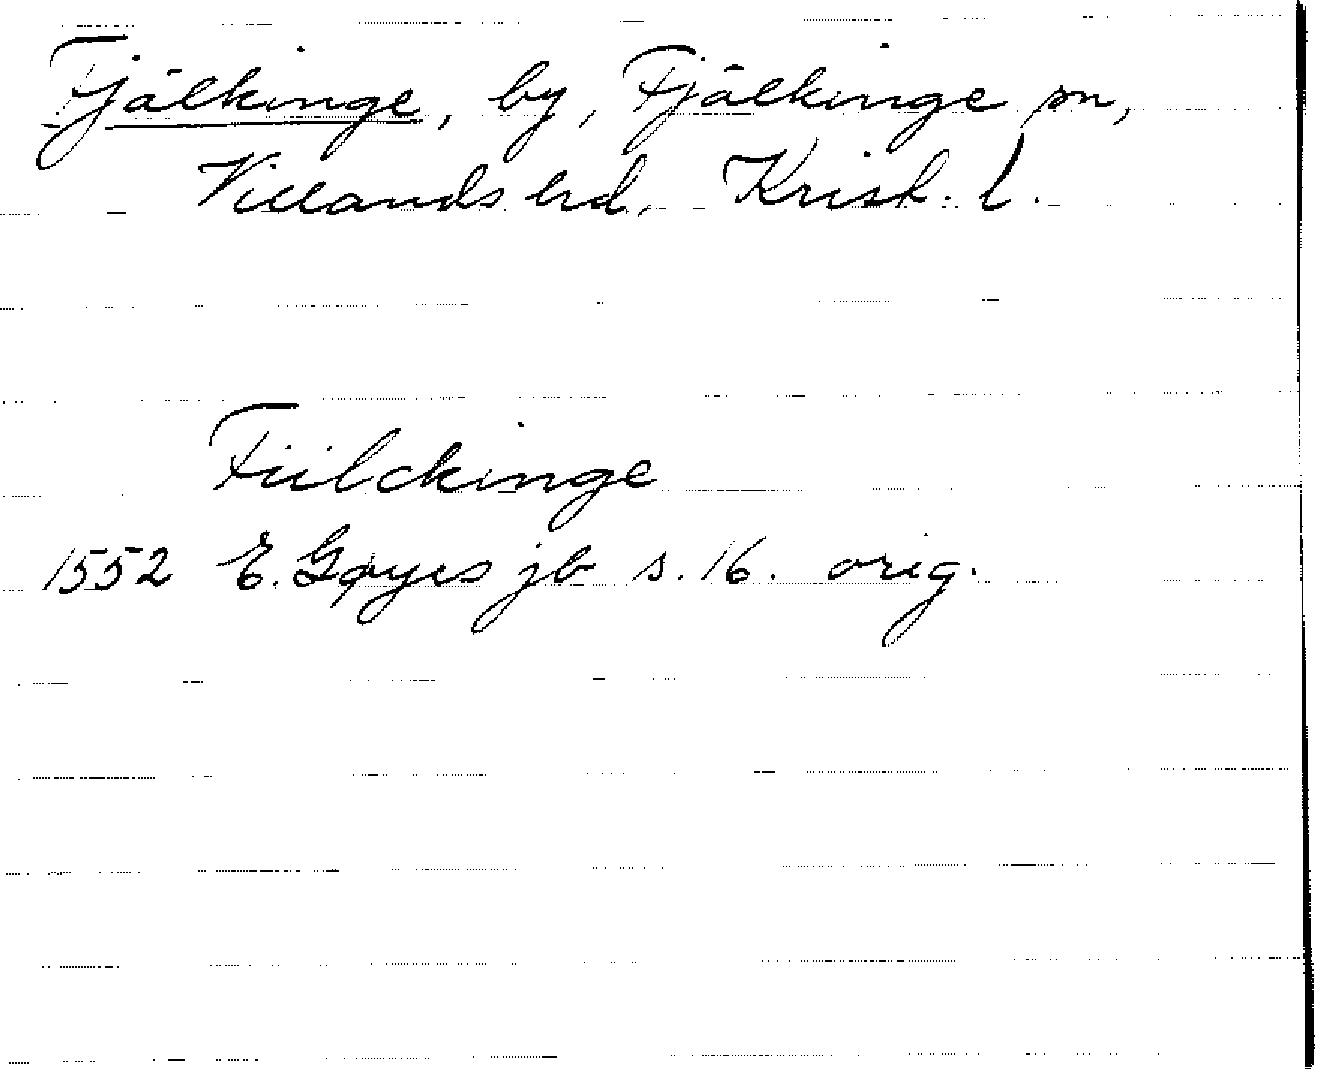 Fjälkinge, by, Fjälkinge sn,
Villands hd, Krist. l.
Fiilckinge
1552 E. Gøyes jb s. 16. orig.